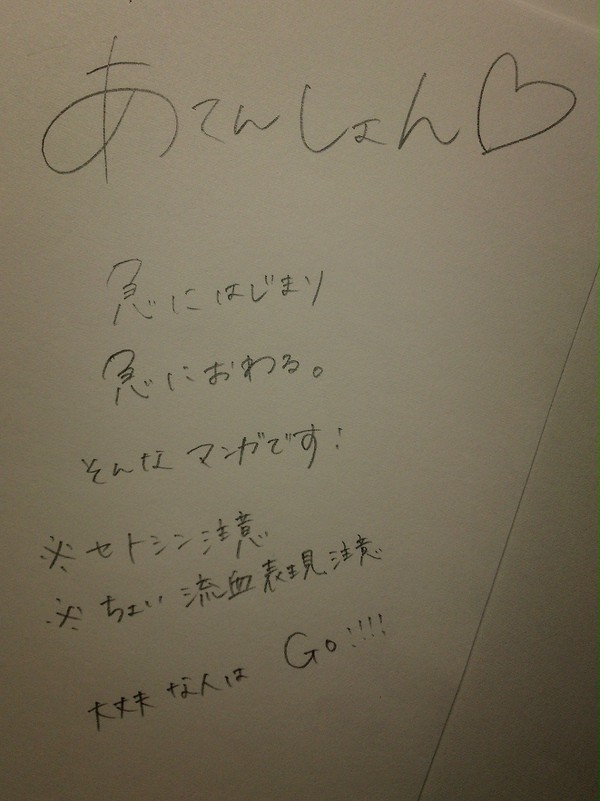 あてんしょん♡
急にはじまり
急におわる。
そんなマンガです!
※セトシン注意
※ちょい流血表現注意
大丈夫な人は Go!!!!